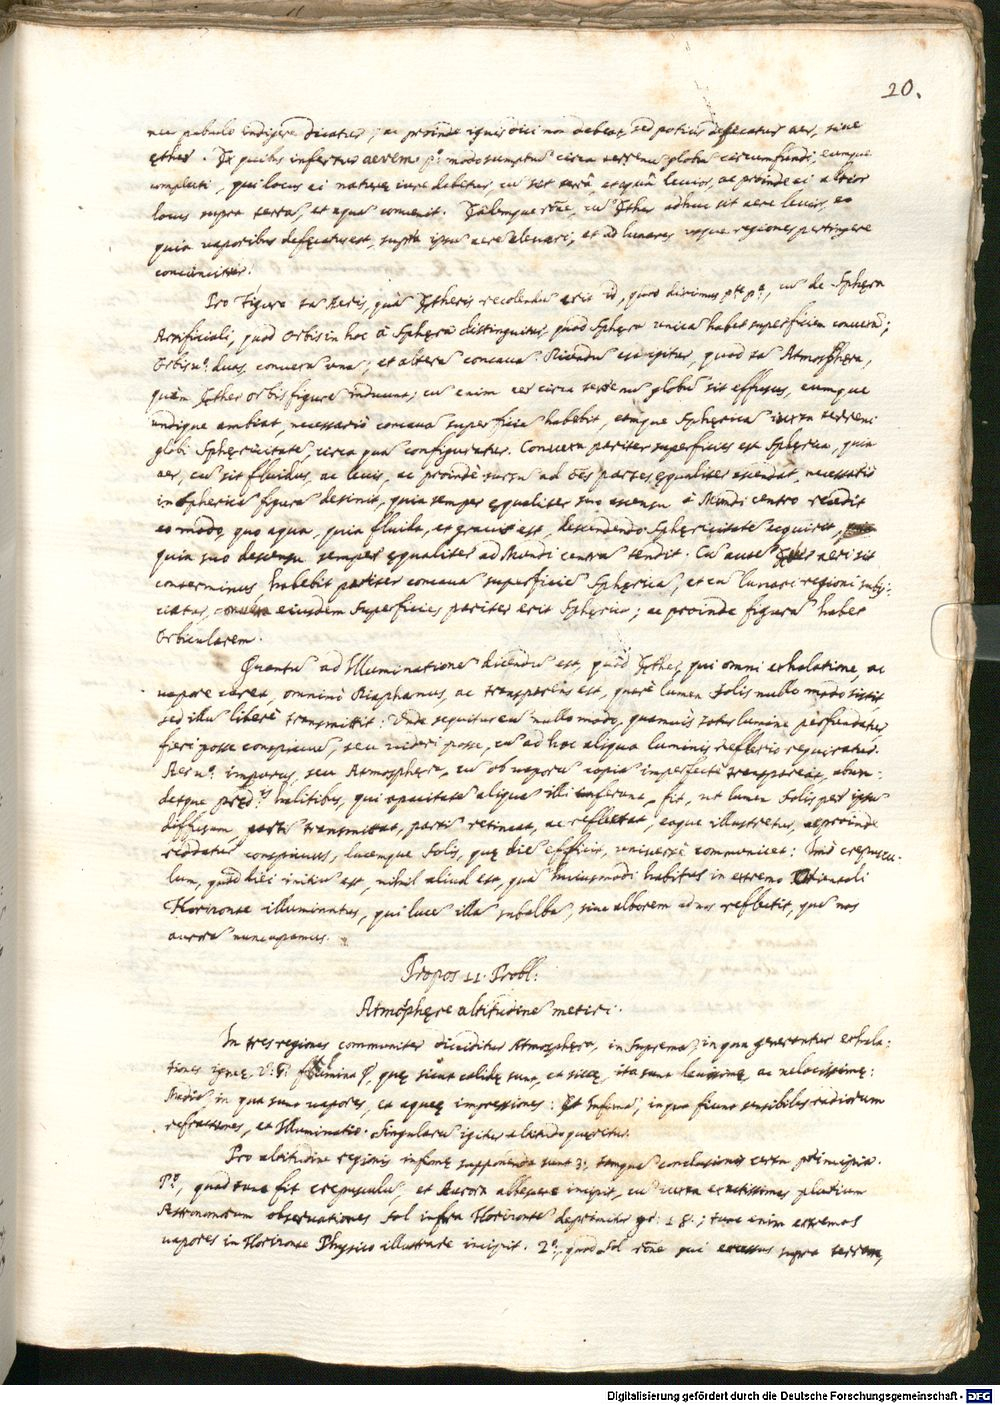 20.
nec pabulo indigere dicatur, ac proinde ignis dici non debeat, sed potius defecatus aer, siue
ęther. Ex quibus infertur aerem pº modo sumptũ circa terrenũ globũ circumfundi, eumque
complecti, qui locus ei naturę iure debetur, cũ sit terrâ, et aquâ leuior, ac proinde ei altior
locus supra terrã, et aquã conuenit. Eademque rõne, cũ Ęther adhuc sit aere leuior, eo
quia uaporibus defęcatus est, supra ipsũ aere eleuari, et ad lunares usque regiones pertingere
conuincitur.
Pro figura tã Aeris, quã Ętheris recolendũ erit id, quod diximus pte pª, cũ de Sphęra
Artificiali, quod Orbis in hoc à Sphęra distinguitur, quod Sphęra unica habet superficiem conuexã;
Orbis uº duas, conuexã unã, et alterã concauã. Dicendũ est igitur, quod tã Atmosphęra,
quàm Ęther orbis figurã induunt; cũ enim aer circa terrenũ globũ sit effusus, eumque
undique ambiat, necessariò concauã superficiẽ habebit, eamque Sphęricã iuxta terreni
globi Sphęricitatẽ, circa quã configuratur. Conuexa pariter superficies est Sphęrica, quia
aer, cũ sit fluidus, ac leuis, ac proinde sursũ ad oẽs partes ęqualiter ascendat, necessariò
in Sphęricã figurã desinit, quia semper ęqualiter suo ascensu à Mundi centro recedit
eo modo, quo aqua, quia fluida, et grauis est, descendendo Sphęricitatẽ acquirit,
quia suo descensu semper ęqualiter ad Mundi centrũ tendit. Cũ autẽ Ęther aeri sit
conterminus habebit pariter concauã superficiẽ Sphęricã, et cũ lunari regioni subij-
ciatur, eiusdem Superficies pariter erit Sphęrica; ac proinde figurã habet
Orbicularem.
Quantũ ad Illuminationẽ dicendũ est, quòd Ęther, qui omni exhalatione, ac
uapore caret, omninò Diaphanus, ac transparens est, quare lumen Solis nullo modo sistit,
sed illũ liberè transmittit. Unde sequitur eũ nullo modo, quamuis totus lumine perfundatur,
fieri posse conspicuũ, seu uideri posse, cũ ad hoc aliqua luminis reflexio requiratur.
Aer uº impurus, seu Atmosphęra, cũ ob uaporũ copiã imperfectè transpareat, abun-
detque prędis halitibus, qui opacitatẽ aliquã illi inferunt, fit, ut lumen Solis per ipsũ
diffusum, partĩ transmittat, partĩ retineat, ac reflectat, eoque illustretur, ac proinde
reddatur conspicuus, lucemque Solis, quę diẽ efficit, uniuersè communicet: Imò crepuscu-
lum, quòd diei initiũ est, nihil aliud est, quã huiusmodi halitus in extremo Orientali
Horizonte illuminatus, qui lucẽ illã subalbã, siue alborem ad nos reflectit, quẽ nos
auroram nuncupamus.
Propos 11. Probl:
Atmosphęre altitudinẽ metiri.
In tres regiones communiter diuiditur Atmosphęra, in Supremã, in qua generantur exhala-
tiones igneę, u: g: fulmina &, quę sicut calidę sunt, et siccę, ita sunt leuissimę, ac uelocissimę:
Mediã, in qua sunt uapores, et aqueę impressiones: Et Infimã, in qua fiunt sensibiles radiorum
refractiones, et Illuminatio. Singularũ igitur altitudo quęretur.
Pro altitudine regionis infimę supponenda sunt 3ª, tamquã conclusiones certa principia.
Pº, quod tunc fit crepusculũ, et Aurora albescere incipit, cũ iuxta exactissimas plurium
Astronomorum obseruationes Sol infra Horizontẽ deprimitur gr: 18; tunc enim extremos
uapores in Horizonte Physico illustrare incipit. 2º, quod Sol rõne sui excessus supra terram,